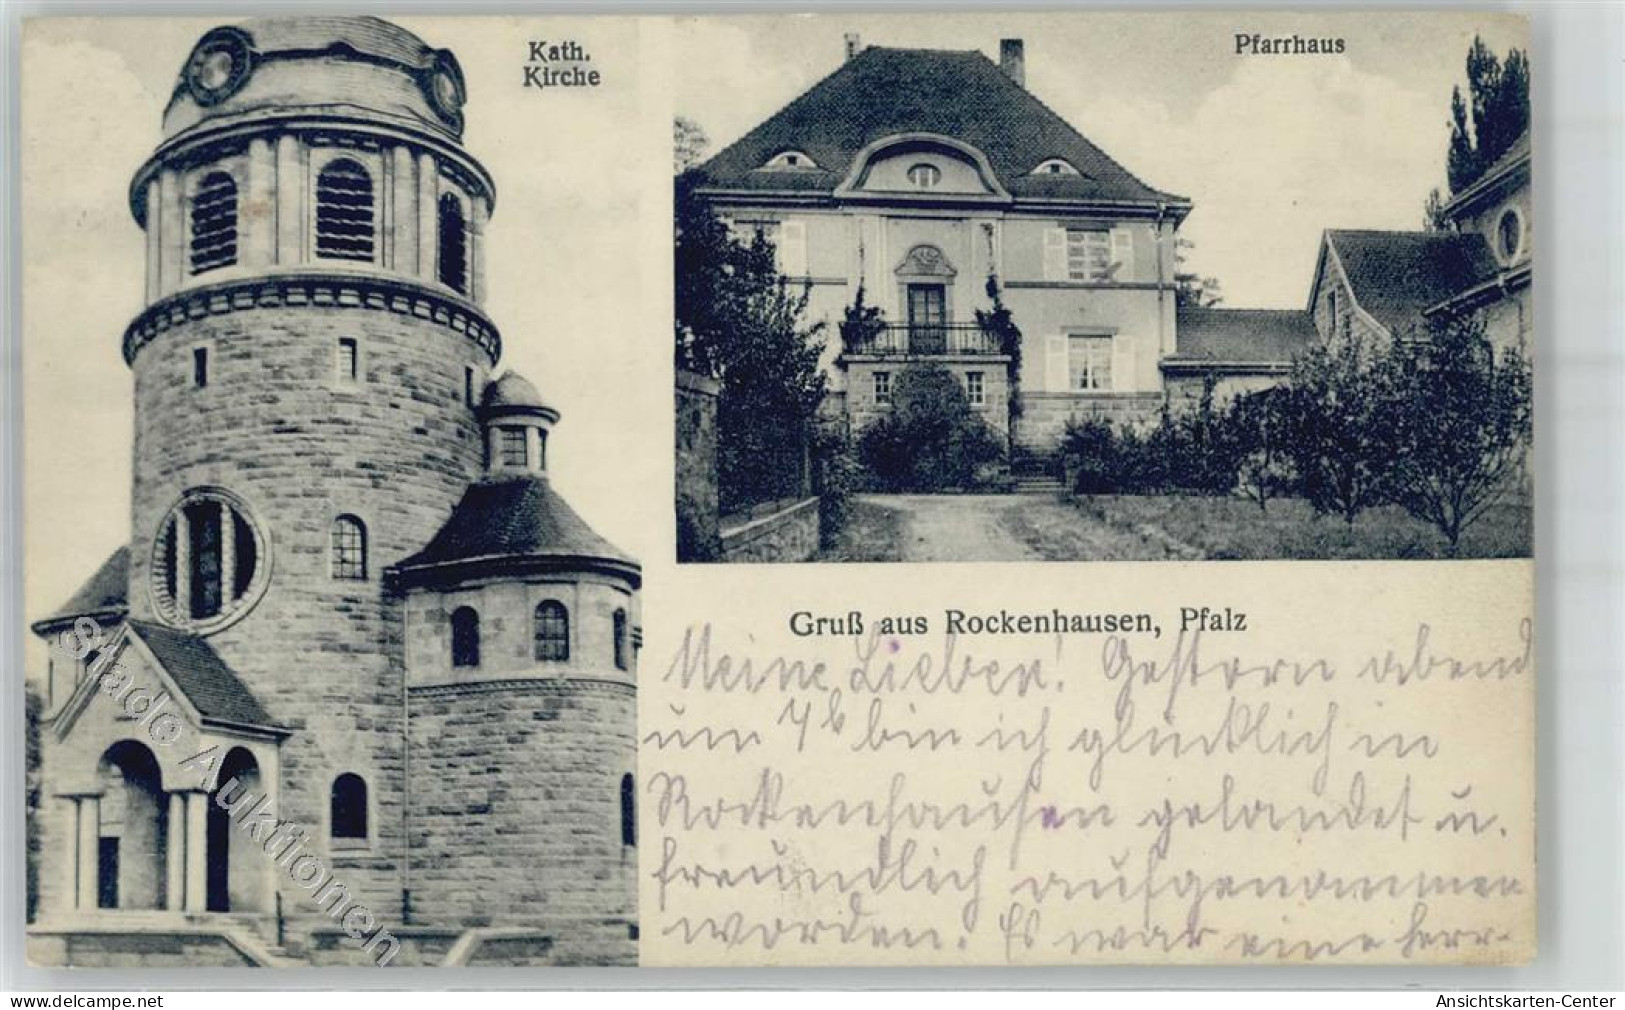 Kath.
Kirche
Pfarrhaus
Gruß aus Rockenhausen, Pfalz
Meine Lieben! Gestern abend
um 7 h bin ich glücklich in
Rockenhausen gelandet u.
freundlich aufgenommen
worden. Es war eine herr-
Stade Auktionen
www.delcampe.net
Ansichtskarten-Center